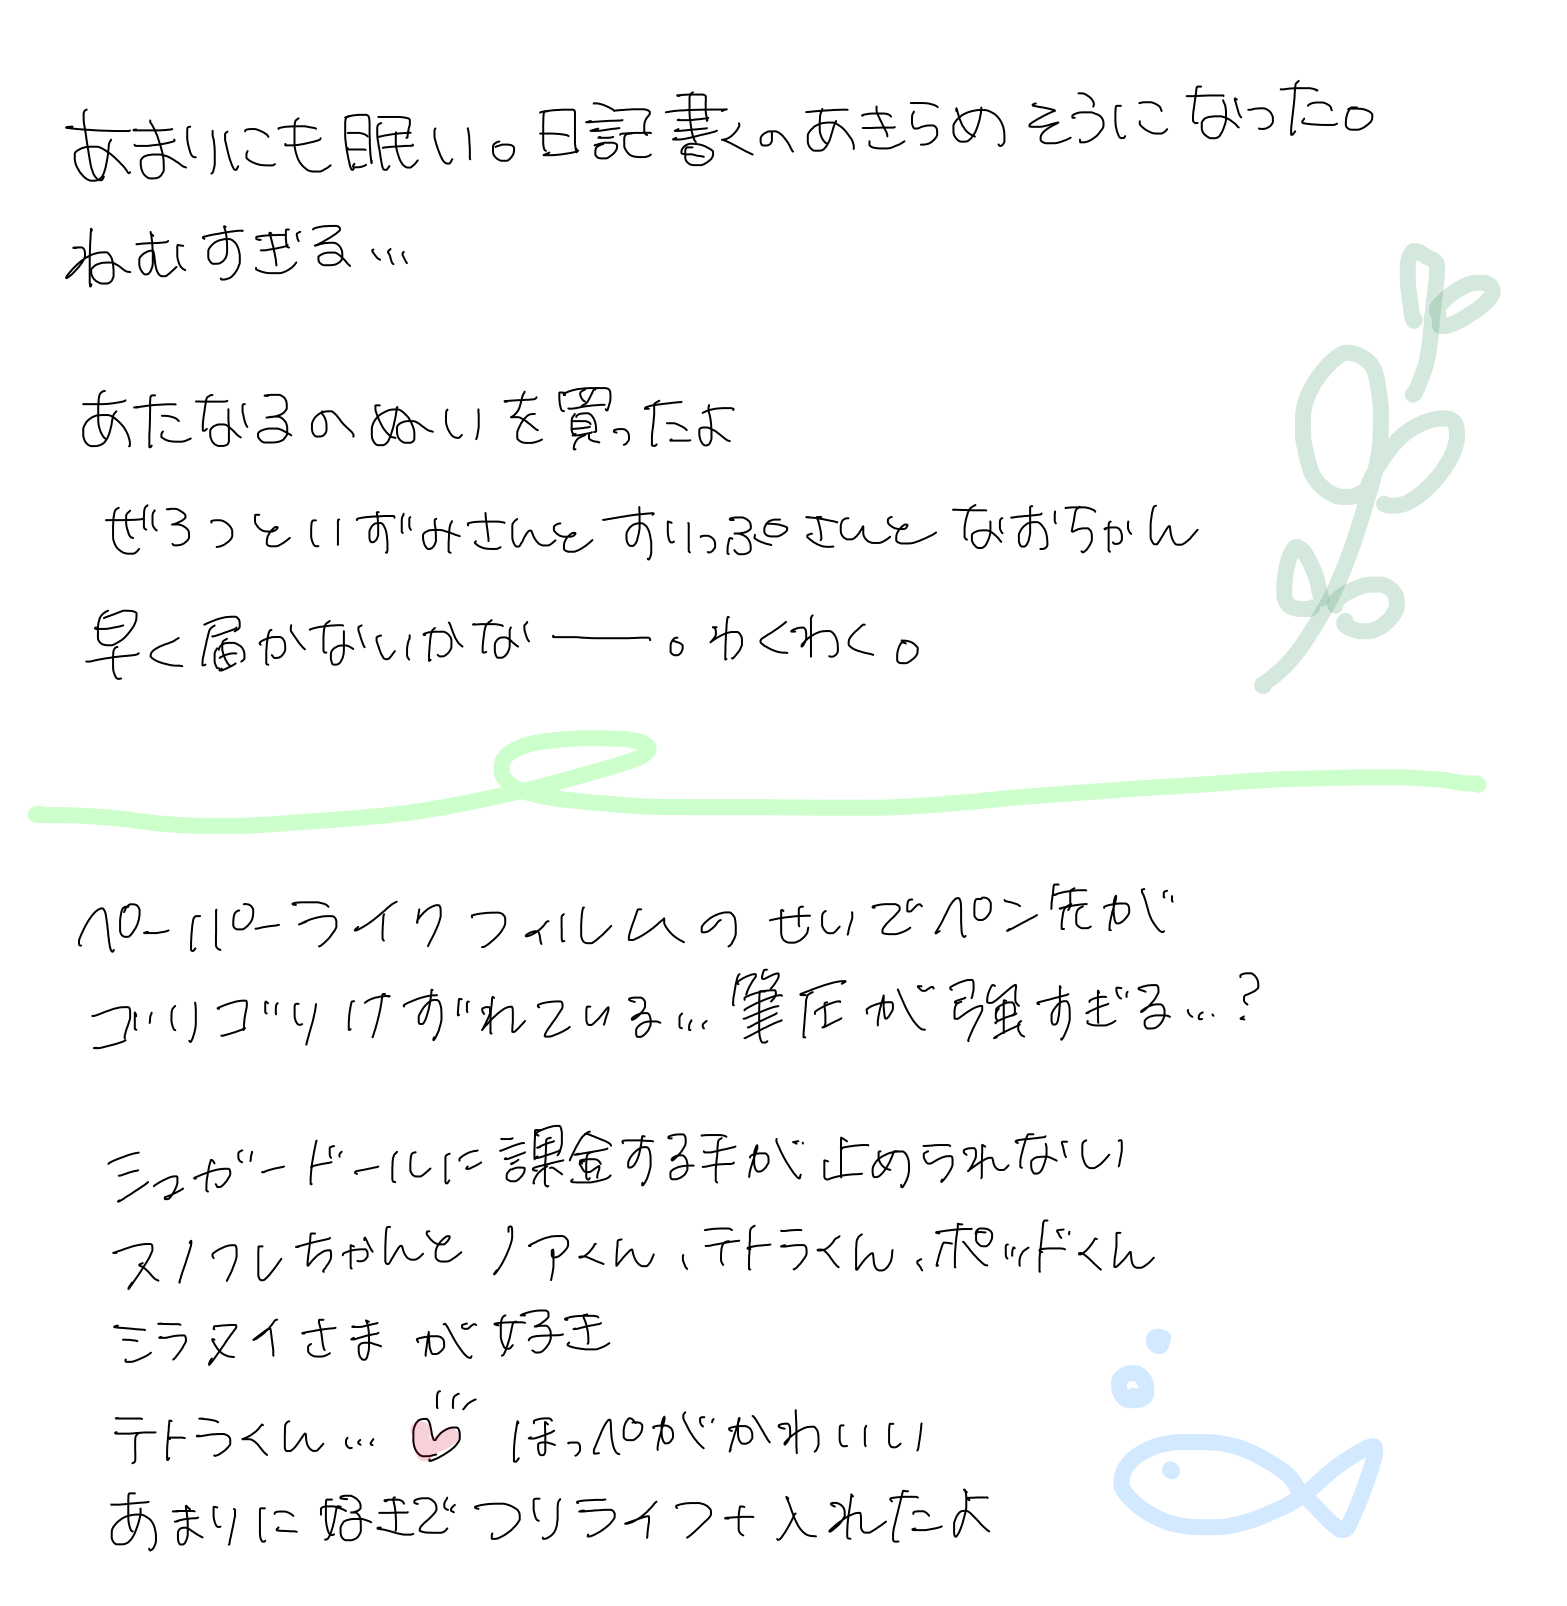 あまりにも眠い。日記書くのあきらめそうになった。
ねむすぎる…
あたなるのぬいを買ったよ
ぜろっといずみさんとすりっぷさんとなおちゃん
早く届かないかなー。わくわく。
ペーパーライクフィルムのせいでペン先が
ゴリゴリけずれている…筆圧が強すぎる…?
シュガードールに課金する手が止められない
スノウレちゃんとノアくん、テトラくん、ポッドくん
ミラヌイさまが好き
テトラくん… ほっぺがかわいい
あまりに好きでつりライフ+入れたよ